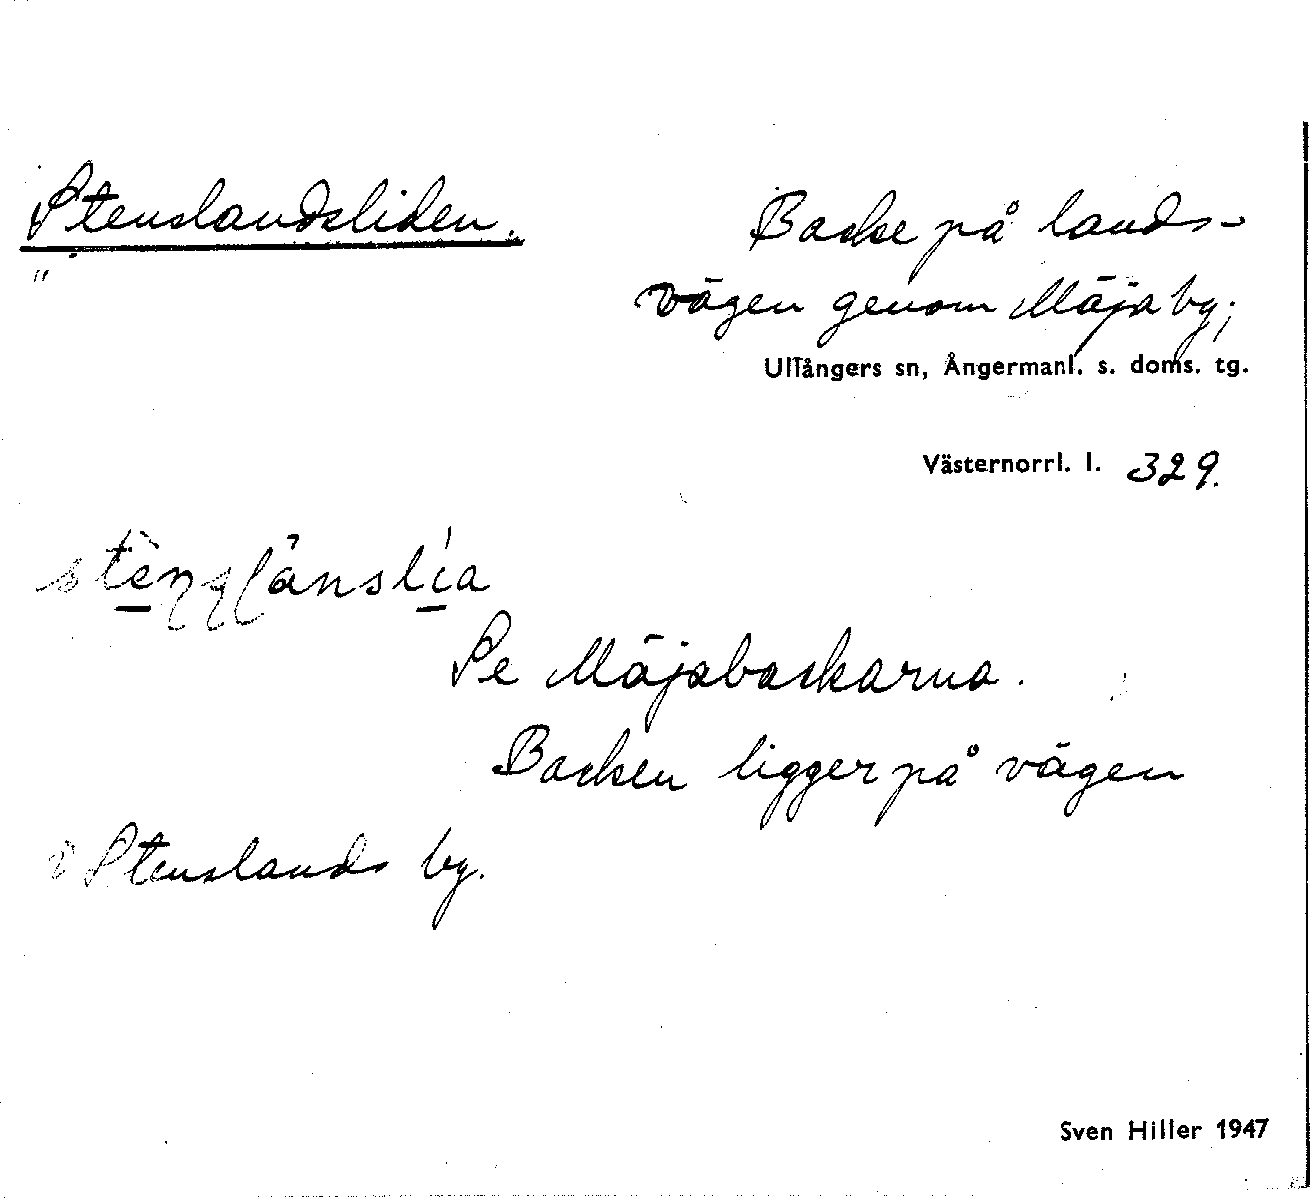 Stenslandsliden.
"
Backe på lands-
vägen genom Mäja by;
Ullångers sn, Ångermanl. s. doms. tg.
Västernorrl. l. 329.
Se Mäjabackarna.
Backen ligger på vägen
i Stenslands by.
Sven Hiller 1947